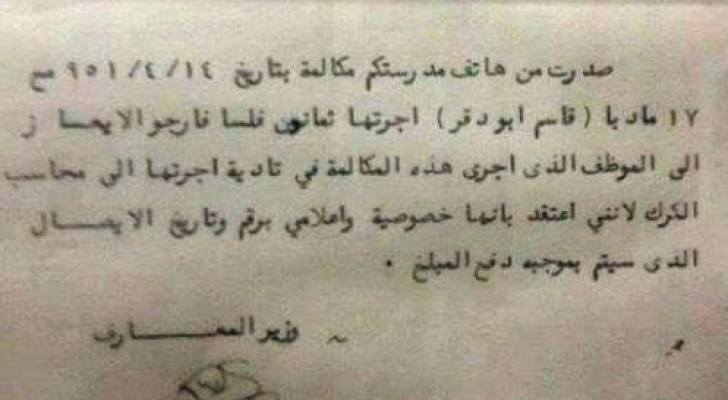 صدرت من هاتف مدرستكم مكالمة بتاريخ ١٤ /٤ /٩٥١ مع
١٧ مادبا ( قاسم ابو دقر ) اجرتها ثمانون فلسا فارجو الايعــاز
الى الموظف الذى اجرى هذه المكالمة في تادية اجرتها الى محاسب
الكرك لانني اعتقد بانها خصوصية واعلامي برقم وتاريخ الايصــال
الذى سيتم بموجبه دفع المبلغ .
وزير المعــارف